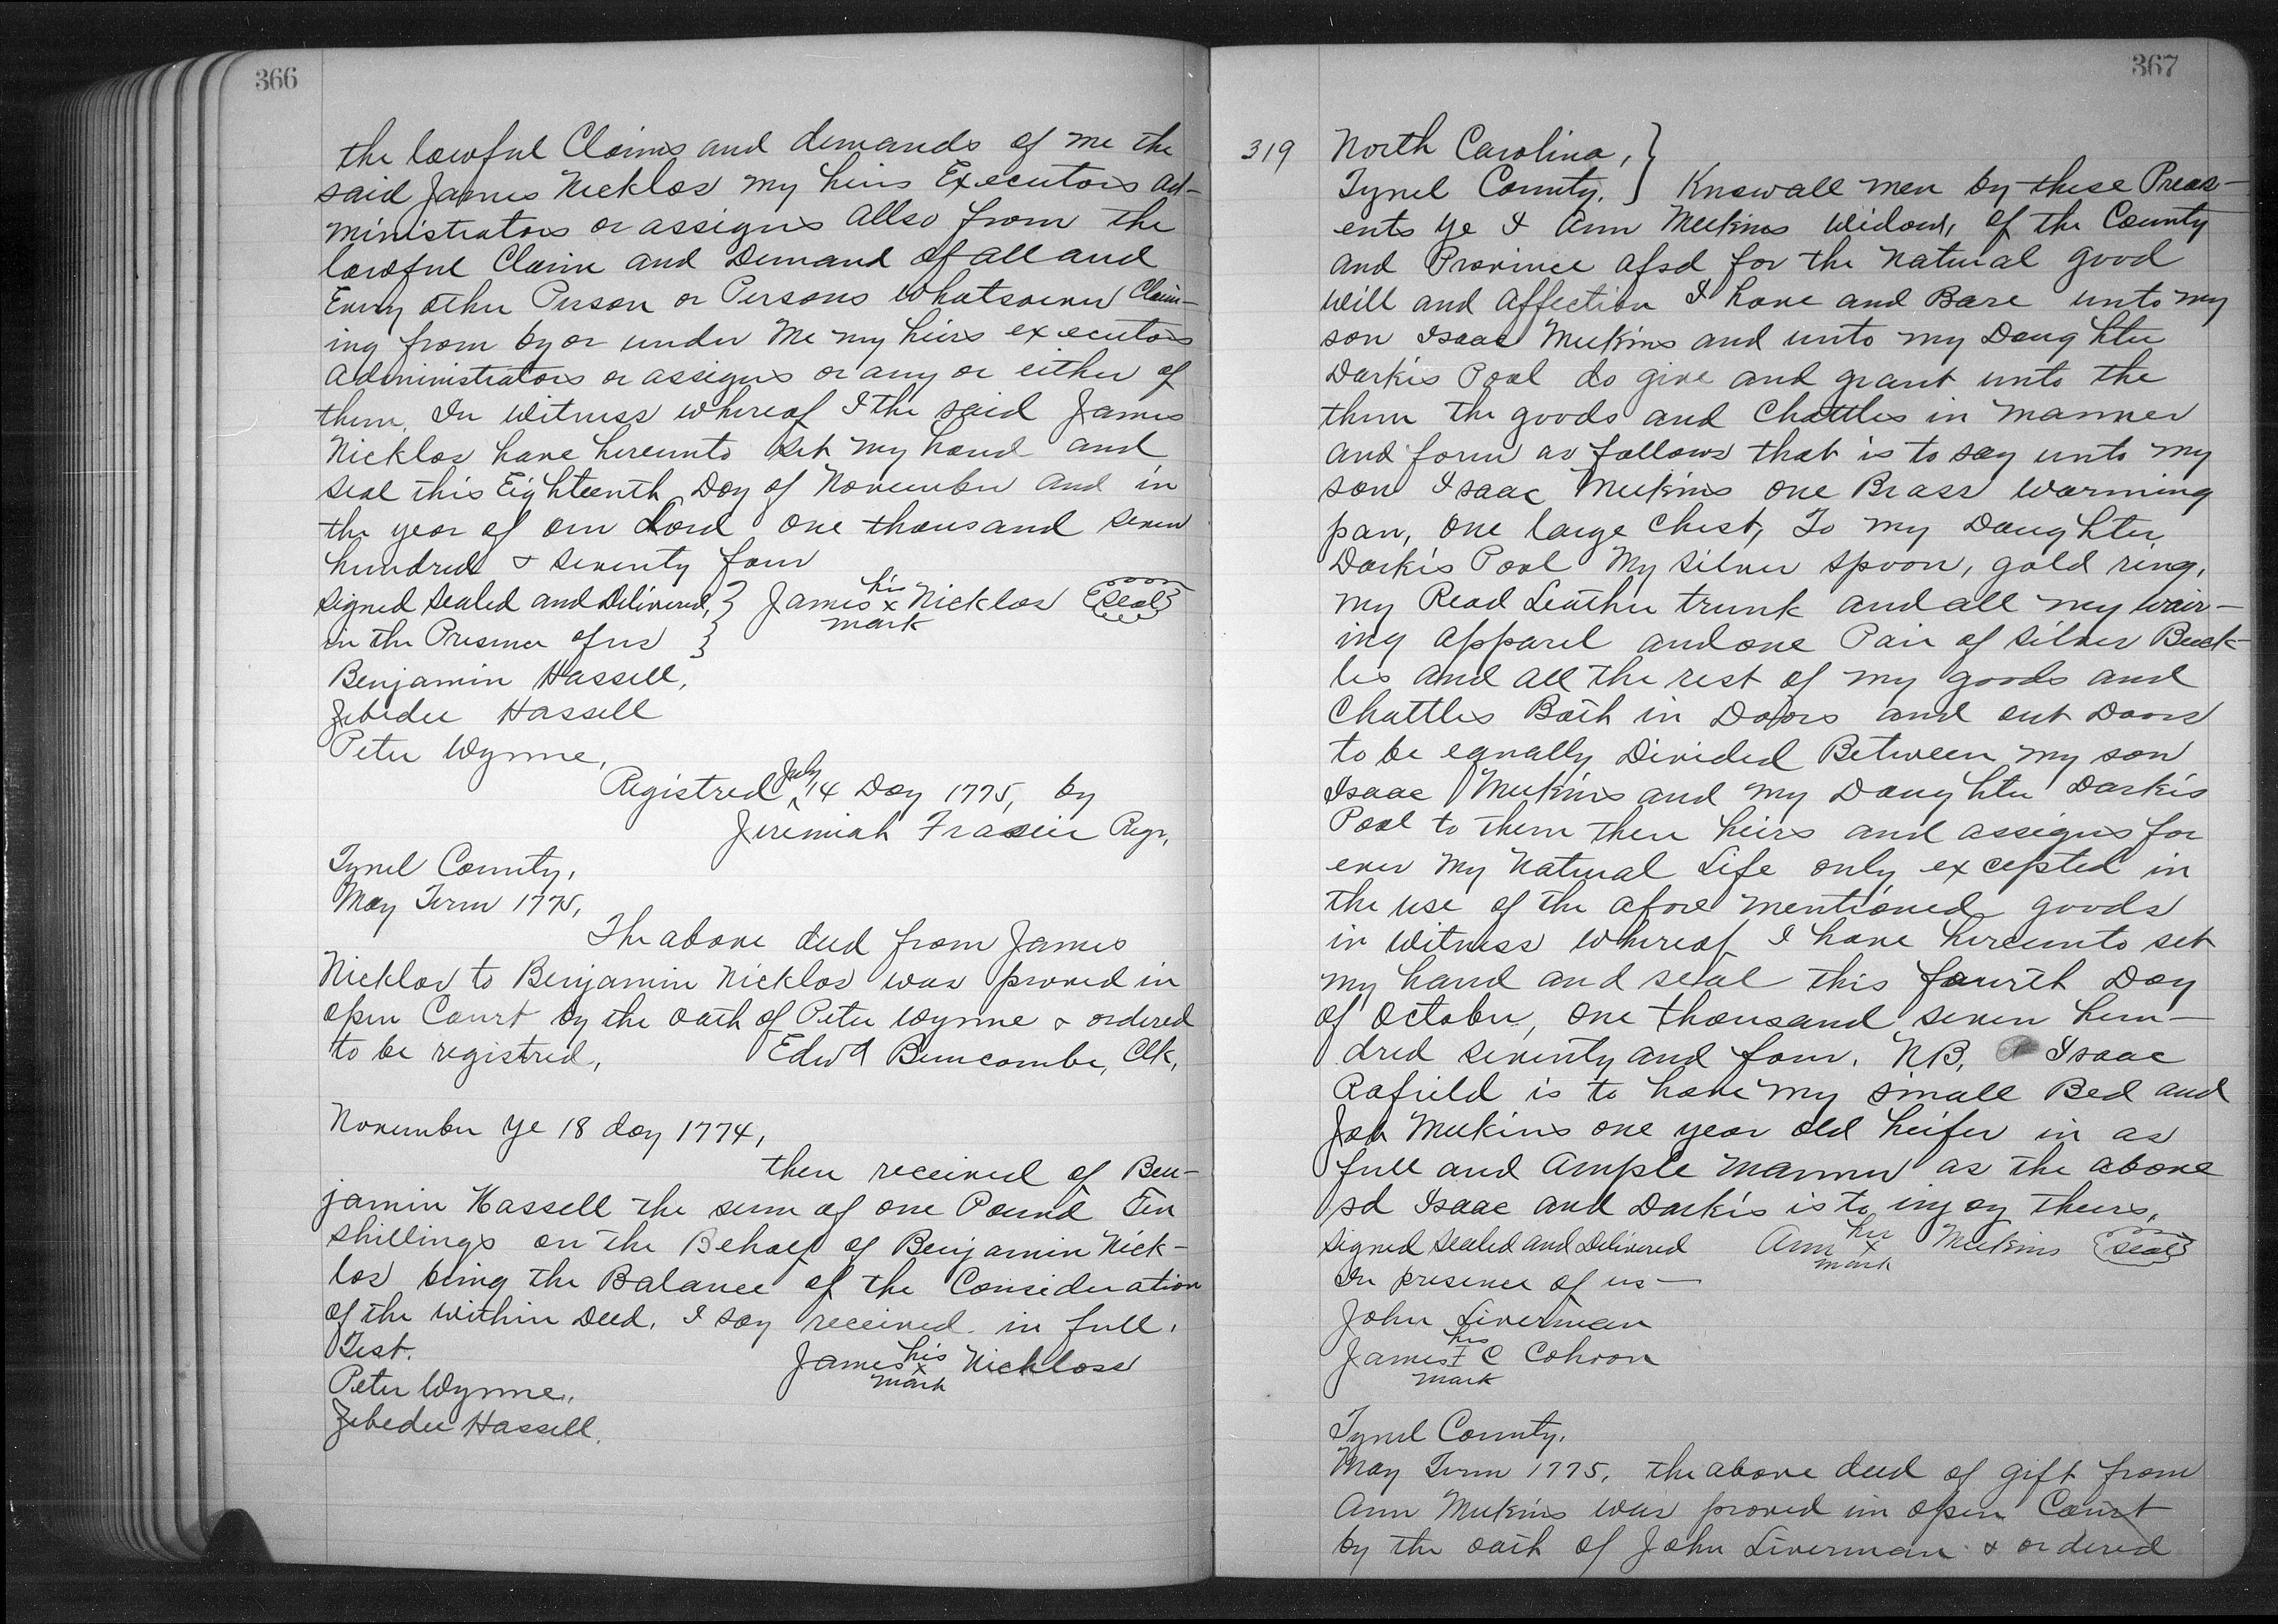 366
the lawful Claims and demands of me the
said James Nicklos my heirs Executors ad-
ministrators or assigns allso from the
lawful Claim and Demand of all and
Every other Person or Persons whatsoever Claim-
ing from by or under Me my heirs executors
administrators or assigns or any or either of
them. In witness whereof I the said James
Nicklos have hereunto set my hand and
seal this Eighteenth Day of November and in
the year of our Lord one thousand seven
hundred & seventy four
signed sealed and Delivered, } James his x mark Nicklos (seal)
in the Presence of us }
Benjamin Hassell,
Zebedee Hassell
Peter Wynne,
Registred July 14 Day 1775, by
Jeremiah Frasier Regr,
Tyrrel County,
May Term 1775,
The above deed from James
Nicklos to Benjamin Nicklos was proved in
open Court by the oath of Peter Wynne & ordered
to be registred, Edwd Buncombe, Clk,
November ye 18 day 1774,
then received of Ben-
jamin Hassell the sum of one Pound Ten
shillings on the Behalf of Benjamin Nick-
los being the Balance of the Consideration
of the within Deed. I say received in full.
Test.
James his x mark Nickloss
Peter Wynne,
Zebedee Hassell.
367
319 North Carolina, }
Tyrel County. } Know all men by these Pres-
ents ye I Ann Meekins widow, of the County
and Province afsd for the natural good
will and affection I have and Bare unto my
son Isaac Meekins and unto my Daughter
Darkis Pool do give and grant unto the
them the goods and Chattles in manner
and form as follows that is to say unto my
son Isaac Meekins one Brass warming
pan, one large chest, To my Daughter
Darkis Pool My silver spoon, gold ring,
my Read Leather trunk and all my wair-
ing apparel and one Pair of silver Buck-
les and all the rest of my goods and
Chattles Both in Doors and out Doors
to be equally Divided Between my son
Isaac Meekins and my Daughter Darkis
Pool to them their heirs and assigns for
ever my Natural Life only excepted in
the use of the afore mentioned goods
in witness whereof I have hereunto set
my hand and seal this fourth Day
of October, one thousand seven hun-
dred seventy and four. NB. Isaac
Rafield is to have my small Bed and
Job Meekins one year old heifer in as
full and ample manner as the above
sd Isaac and Darkis is to injoy theirs,
signed sealed and Delivered Ann her x mark Meekins (seal)
In presence of us—
John Liverman
James his I C mark Cohoon
Tyrrel County.
May Term 1775, the above deed of gift from
Ann Meekins was proved in open Court
by the oath of John Liverman & ordered